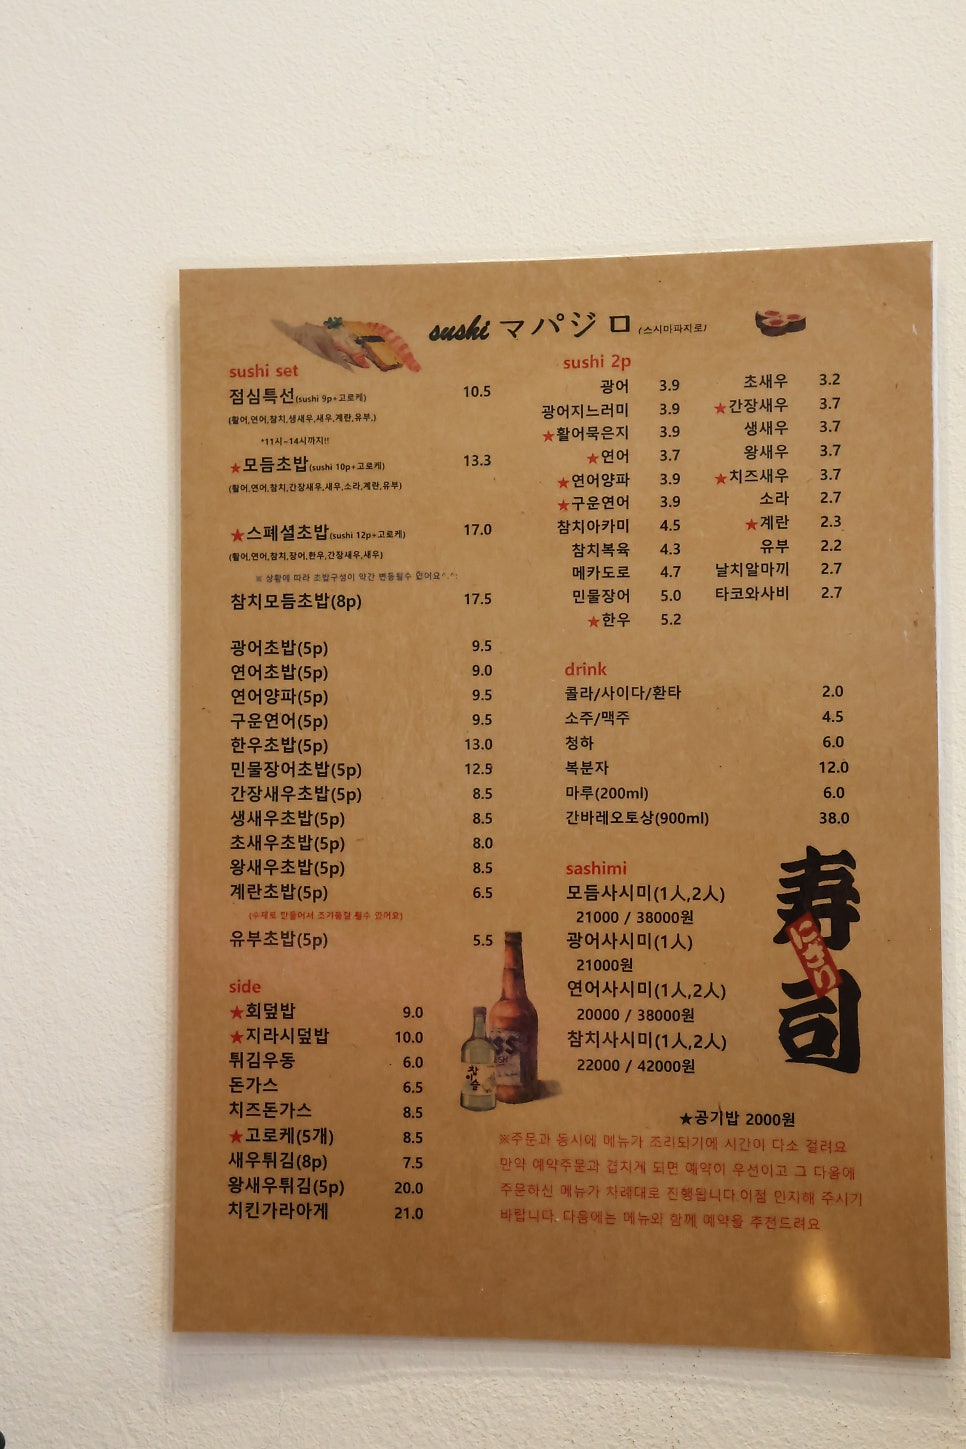 sushi マパジロ(스시마파지로)
sushi set
점심특선(sushi 9p+고로케) 10.5
(활어,연어,참치,생새우,새우,계란,유부,)
*11시~14시까지!!
★모듬초밥(sushi 10p+고로케) 13.3
(활어,연어,참치,간장새우,새우,소라,계란,유부)
★스페셜초밥(sushi 12p+고로케) 17.0
(활어,연어,참치,장어,한우,간장새우,새우)
※ 상황에 따라 초밥구성이 약간 변동될수 있어요^.^:
참치모듬초밥(8p) 17.5
광어초밥(5p) 9.5
연어초밥(5p) 9.0
연어양파(5p) 9.5
구운연어(5p) 9.5
한우초밥(5p) 13.0
민물장어초밥(5p) 12.5
간장새우초밥(5p) 8.5
생새우초밥(5p) 8.5
초새우초밥(5p) 8.0
왕새우초밥(5p) 8.5
계란초밥(5p) 6.5
(수제로 만들어서 조기품절 될수 있어요)
유부초밥(5p) 5.5
side
★회덮밥 9.0
★지라시덮밥 10.0
튀김우동 6.0
돈가스 6.5
치즈돈가스 8.5
★고로케(5개) 8.5
새우튀김(8p) 7.5
왕새우튀김(5p) 20.0
치킨가라아게 21.0
sushi 2p
광어 3.9
광어지느러미 3.9
★활어묵은지 3.9
★연어 3.7
★연어양파 3.9
★구운연어 3.9
참치아카미 4.5
참치복육 4.3
메카도로 4.7
민물장어 5.0
★한우 5.2
초새우 3.2
★간장새우 3.7
생새우 3.7
왕새우 3.7
★치즈새우 3.7
소라 2.7
★계란 2.3
유부 2.2
날치알마끼 2.7
타코와사비 2.7
drink
콜라/사이다/환타 2.0
소주/맥주 4.5
청하 6.0
복분자 12.0
마루(200ml) 6.0
간바레오토상(900ml) 38.0
sashimi
모듬사시미(1人,2人)
21000 / 38000원
광어사시미(1人)
21000원
연어사시미(1人,2人)
20000 / 38000원
참치사시미(1人,2人)
22000 / 42000원
寿司
にぎり
참이슬
★공기밥 2000원
※주문과 동시에 메뉴가 조리되기에 시간이 다소 걸려요
만약 예약주문과 겹치게 되면 예약이 우선이고 그 다음에
주문하신 메뉴가 차례대로 진행됩니다.이점 인지해 주시기
바랍니다. 다음에는 메뉴와 함께 예약을 추천드려요